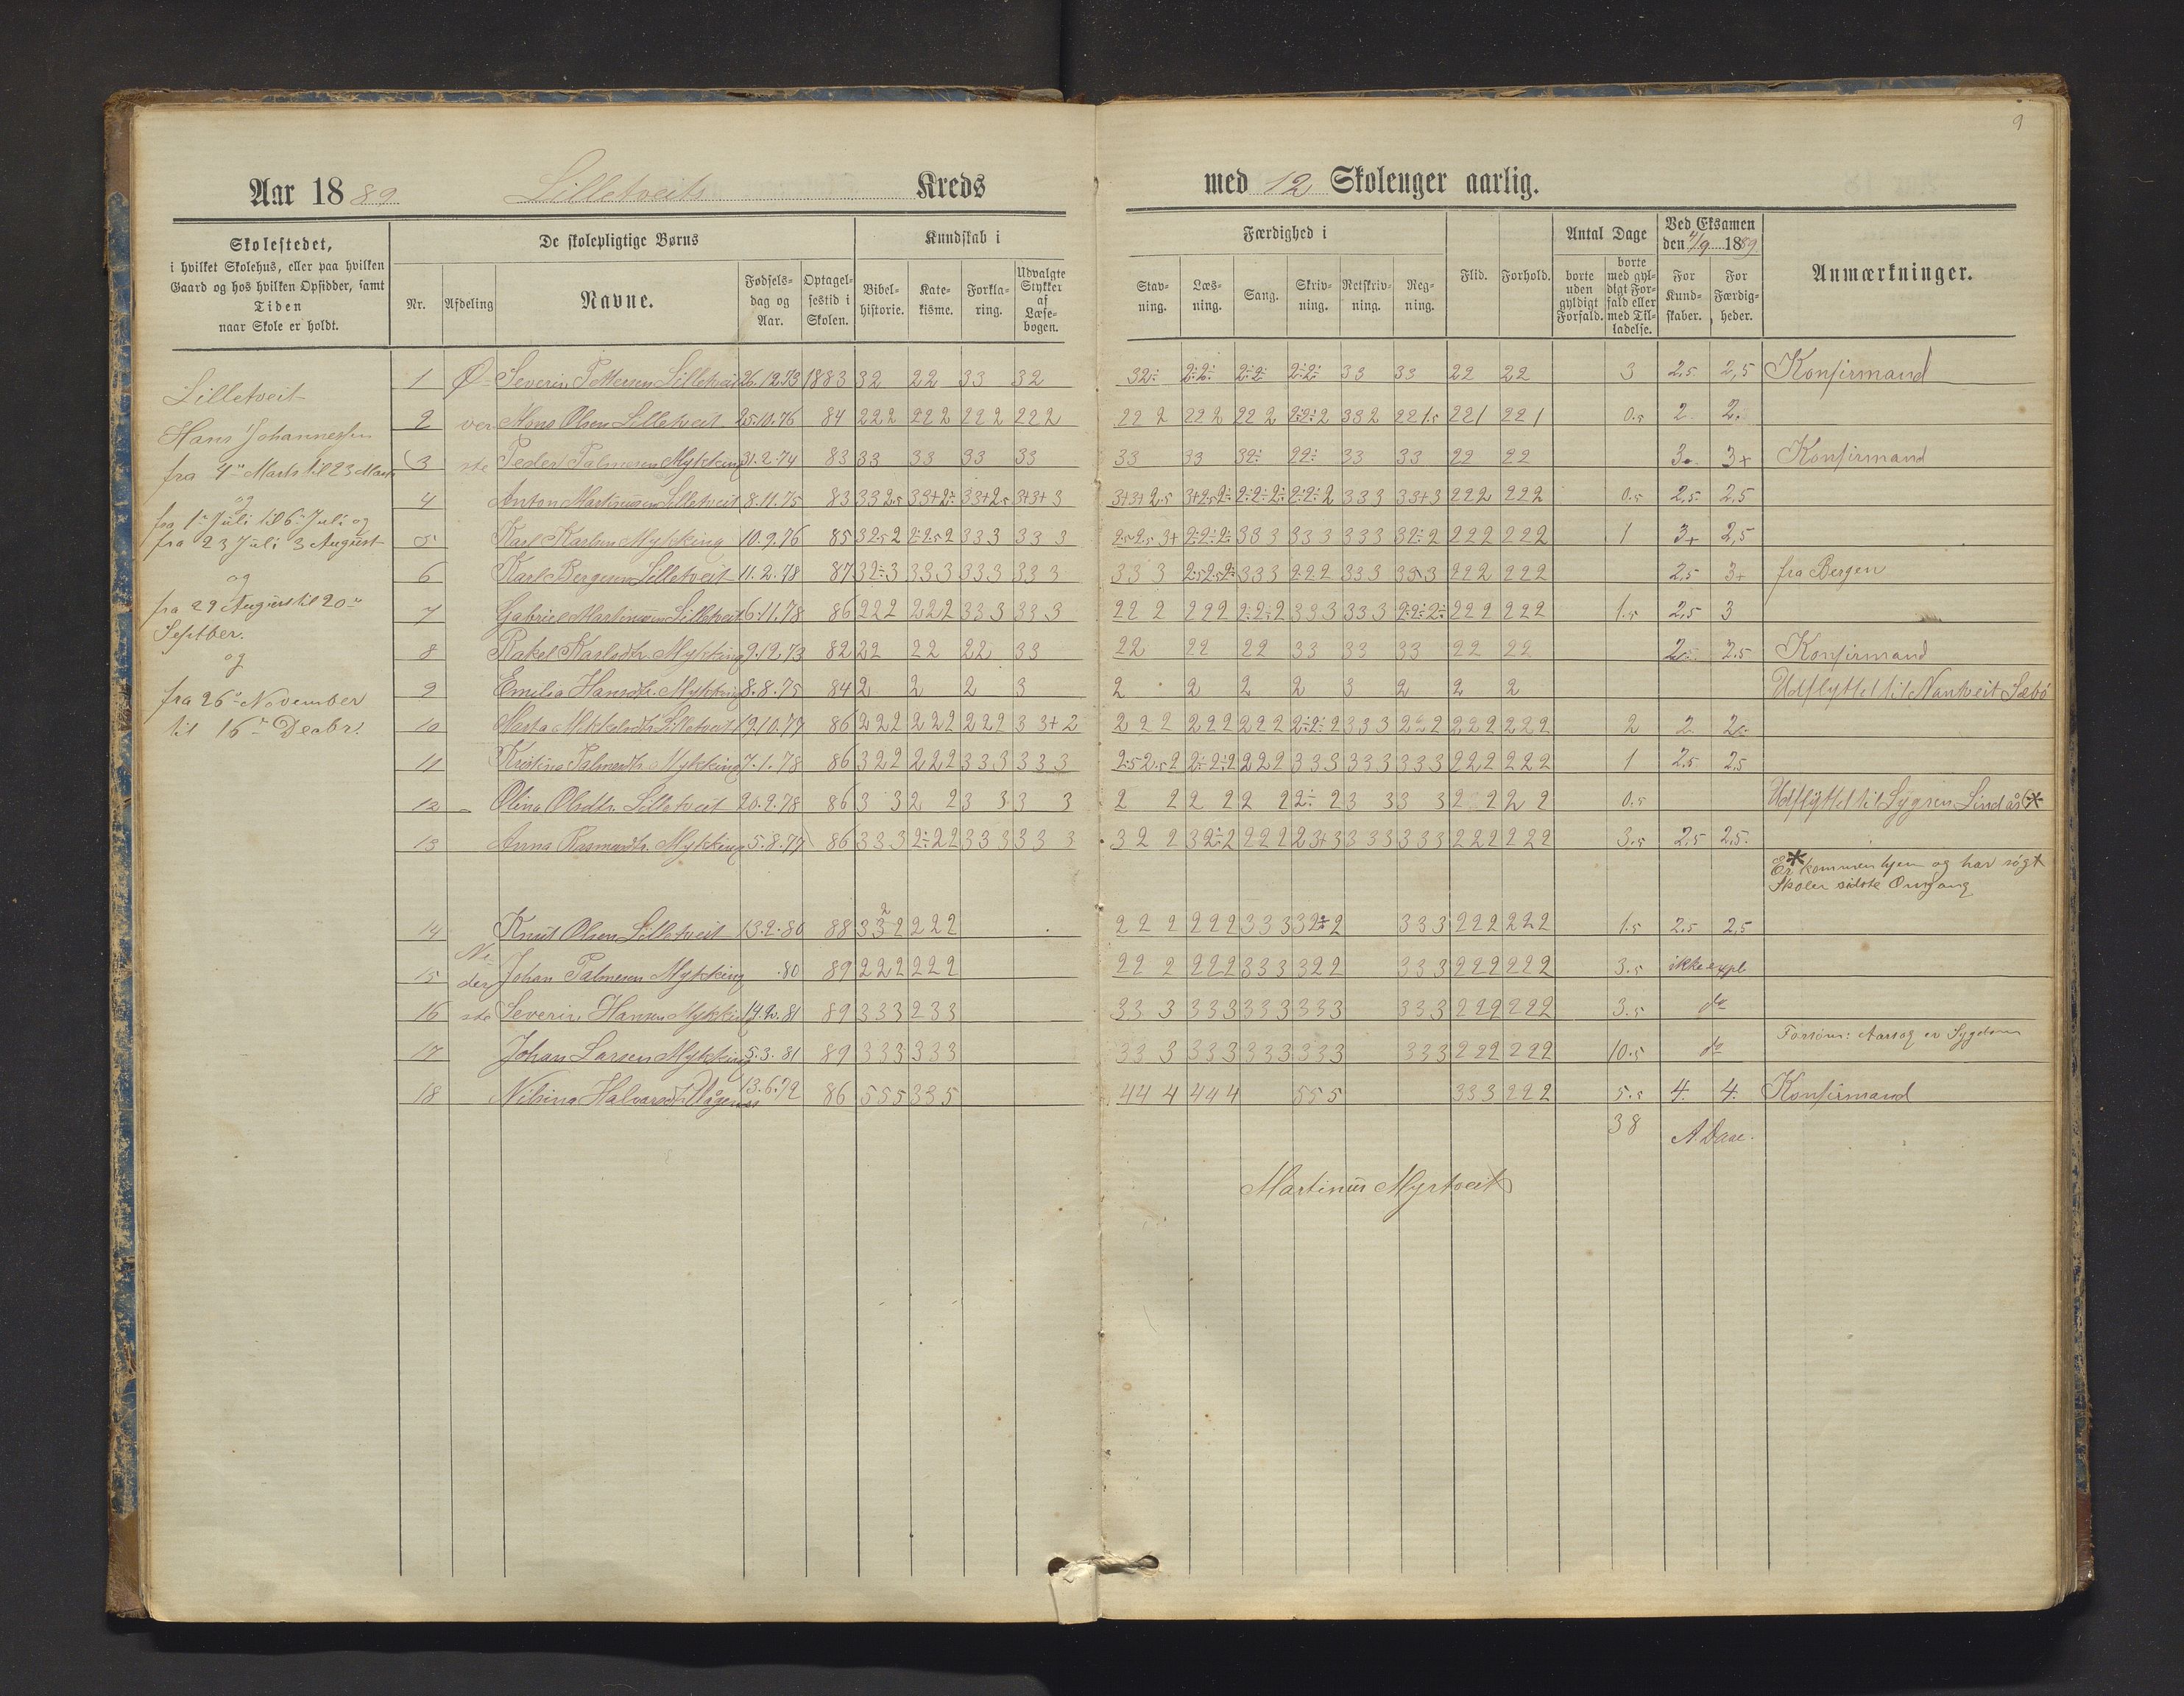 9
Aar 1889 Lilletveits Kreds med 12 Skoleuger aarlig.
Skolestedet,
i hvilket Skolehus, eller paa hvilken
Gaard og hos hvilken Opsidder, samt
Tiden
naar Skole er holdt.
De skolepligtige Børns
Nr. Afdeling Navne. Fødselsdag og Aar. Optagelsestid i Skolen.
Kundskab i
Bibelhistorie. Katekisme. Forklaring. Udvalgte Stykker af Læsebogen.
Færdighed i
Stavning. Læsning. Sang. Skrivning. Retskrivning. Regning.
Flid. Forhold.
Antal Dage
borte uden gyldigt Forfald. borte med gyldigt Forfald eller med Tilladelse.
Ved Eksamen den 4/9 1889
For Kundskaber. For Færdigheder.
Anmærkninger.
Lilletveit
Hans Johannessen
fra 4de Marts til 23 Marts
og
fra 1ste Juli til 6te Juli og
fra 23 Juli 3 August
og
fra 29 August til 20de
Septber.
og
fra 26de November
til 16de Decbr.
Øverste
1 Severin Pettersen Lilletveit 26.12.73 1883 32 22 33 32 32÷ 2÷2÷ 2÷2÷ 2÷2÷ 33 33 22 22 3 2.5 2,5 Konfirmand
2 Mons Olsen Lilletveit 25.10.76 84 222 222 222 222 222 222 222 2÷2÷2 332 221.5 221 221 0.5 2 2.
3 Peder Palmesen Mykking 31.2.74 83 33 33 33 33 33 33 32÷ 22÷ 33 33 22 22 3. 3+ Konfirmand
4 Anton Martinussen Lilletveit 8.11.75 83 332.5 33+2÷ 33+2.5 3+3+3 3+3+2.5 3+2.52÷ 2÷2÷2÷ 2÷2÷2 333 33+3 222 222 0.5 2,5 2,5
5 Karl Karlsen Mykking 10.9.76 85 32.52 2÷2.52 333 333 2.52.53+ 2÷2÷2÷ 333 333 333 32÷2 222 222 1 3+ 2,5
6 Karl Bergesen Lilletveit 11.2.78 87 32÷3 333 333 333 333 2.52.52÷ 333 222 333 333 222 222 2,5 3+ fra Bergen
7 Gabriel Martinussen Lilletveit 6.11.78 86 222 222 333 333 222 222 2÷2÷2 333 333 2÷2÷2÷ 222 222 1.5 2,5 3
8 Rakel Karlsdtr. Mykking 9.12.73 82 22 22 22 33 22 22 22 33 33 33 22 22 2÷ 2.5 Konfirmand
9 Emilia Hansdtr. Mykking 8.8.75 84 2 2 2 3 2 2 2 2 3 2 2 2 Udflyttet til Nantveit Sæbö
10 Marta Mikkelsdtr Lilletveit 19.10.77 86 222 222 222 33+2 222 222 222 2÷2÷2 333 222 222 222 2 2 2÷
11 Kristina Palmesdtr. Mykking 7.1.78 86 322 222 333 333 2.52.52 2÷2÷2 222 333 333 333 222 222 1 2,5 2,5
12 Olina Olsdtr. Lilletveit 20.9.78 86 3 3 2 2 3 3 3 3 2 2 2 2 2 2 2÷ 2 3 3 3 3 2 2 2 2 0.5 Udflyttet til Sygnen Lindås *
13 Anna Rasmusdtr. Mykking 5.8.77 86 333 2÷22 333 333 322 32÷2 222 23+3 333 333 222 222 3.5 2,5 2,5.
* Er kommen hjem og har søgt
Skolen sidste Omgang
Nederste
14 Knut Olsen Lilletveit 13.2.80 88 332 222 222 222 333 32÷2 333 222 222 1.5 2.5 2,5
15 Johan Palmesen Mykking .80 89 222 222 222 222 333 322 333 222 222 3.5 ikke expl.
16 Severin Hansen Mykking 14.2.81 89 333 233 333 333 333 333 333 222 222 3.5 do
17 Johan Larsen Mykking 5.3.81 89 333 333 333 333 333 333 333 222 222 10.5 do Forsöm: Aarsag er Sygdom
18 Nilsina Halvarsdtr Vågenes 13.6.72 86 555 335 444 444 555 333 222 5.5 4. 4. Konfirmand
38 A Daae.
Martinus Myrtveit